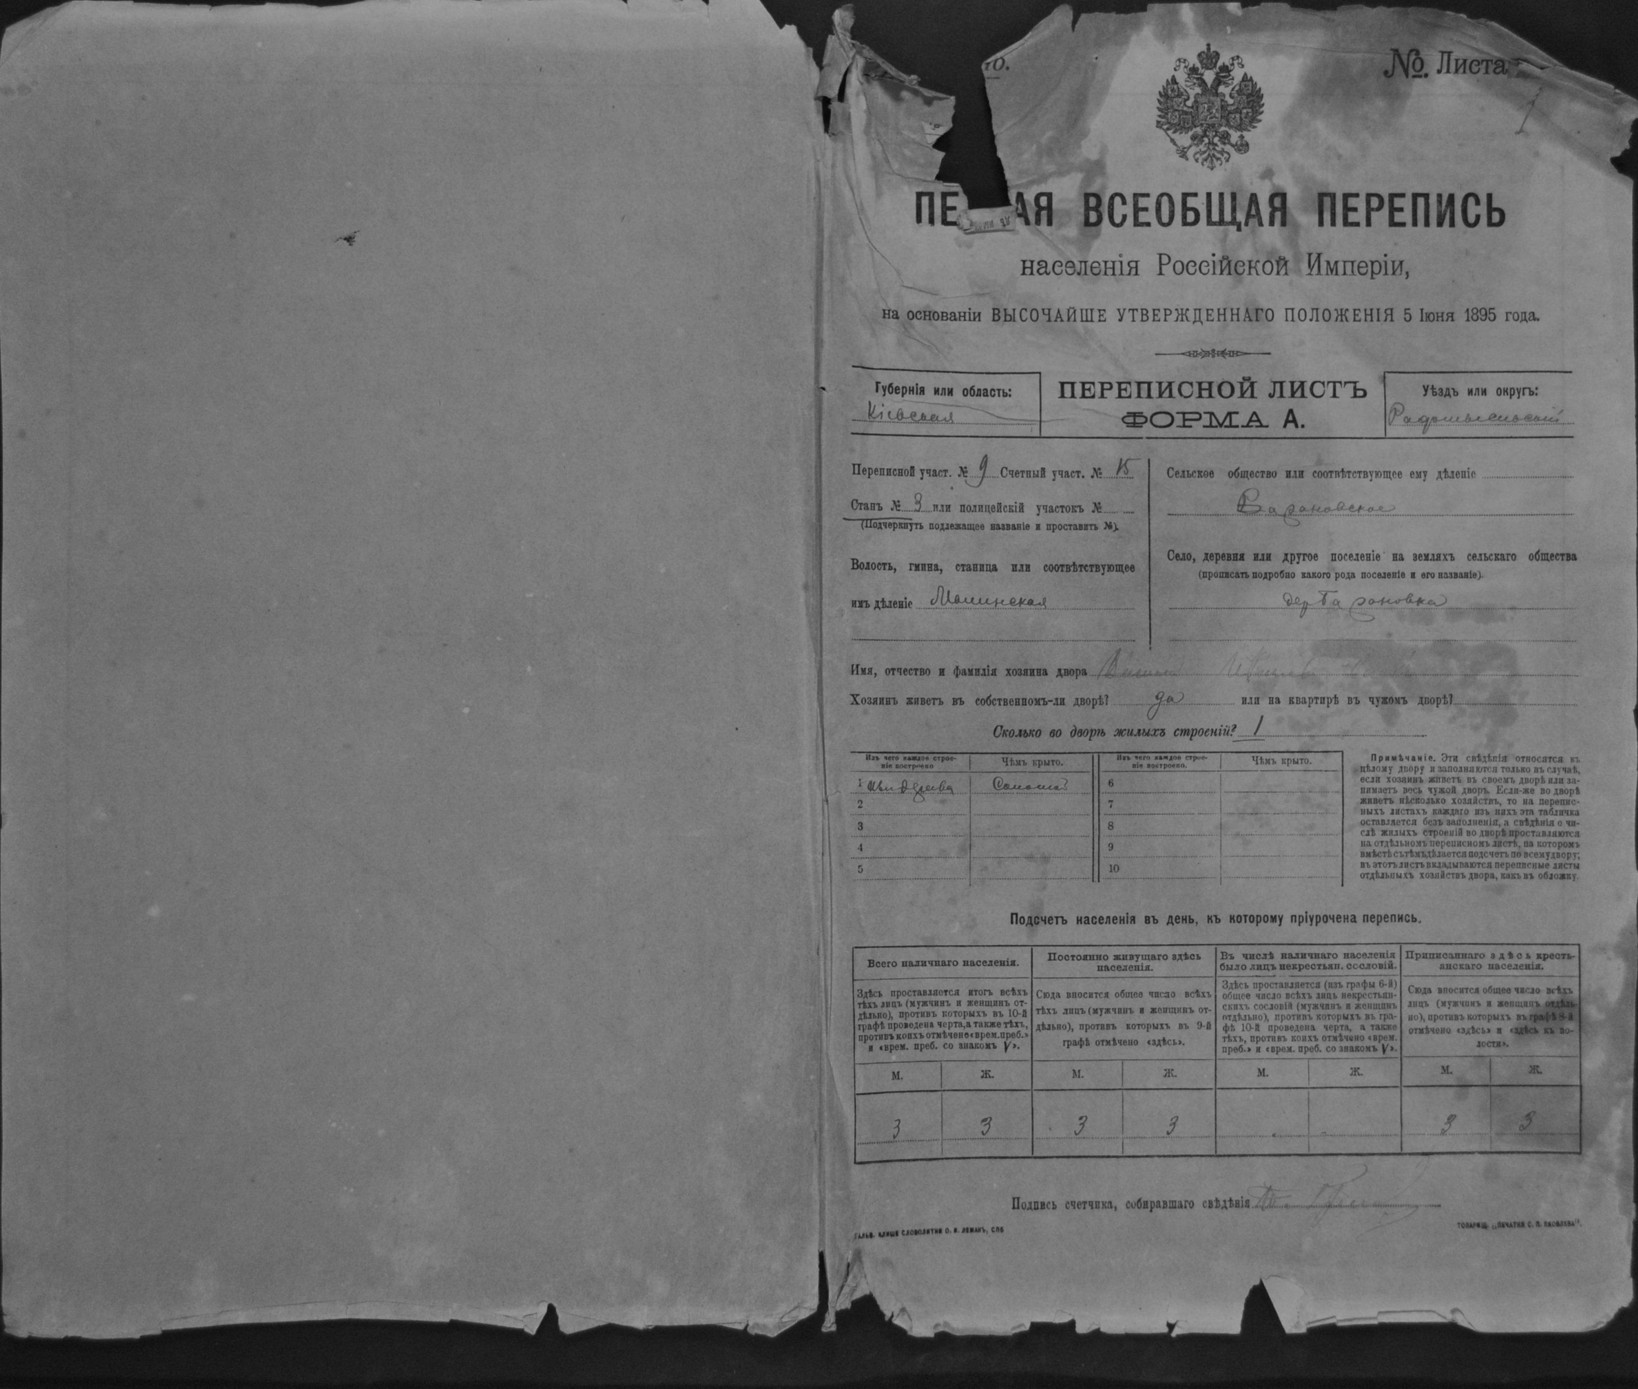 №. Листа
1
ПЕ АЯ ВСЕОБЩАЯ ПЕРЕПИСЬ
населенія Россійской Имперіи,
на основаніи ВЫСОЧАЙШЕ УТВЕРЖДЕННАГО ПОЛОЖЕНІЯ 5 Іюня 1895 года.
Губернія или область:
Кіевская
ПЕРЕПИСНОЙ ЛИСТЪ
ФОРМА А.
Уѣздъ или округъ:
Радомысльскій
Переписной участ. № 9 Счетный участ. № 15
Станъ № 3 или полицейскій участокъ №
(Подчеркнуть подлежащее названіе и проставить №).
Волость, гмина, станица или соотвѣтствующее
имъ дѣленіе Малинская
Сельское общество или соотвѣтствующее ему дѣленіе
Барановское
Село, деревня или другое поселеніе на земляхъ сельскаго общества
(прописать подробно какого рода поселеніе и его названіе).
дер Барановка
Имя, отчество и фамилія хозяина двора
Хозяинъ живетъ въ собственномъ-ли дворѣ? да или на квартирѣ въ чужомъ дворѣ?
Сколько во дворѣ жилыхъ строеній? 1
Изъ чего каждое строе-
ніе построено
Чѣмъ крыто.
Изъ чего каждое строе-
ніе построено.
Чѣмъ крыто.
1 Изъ дерева Соломой 6
2 7
3 8
4 9
5 10
Примѣчаніе. Эти свѣдѣнія относятся къ
цѣлому двору и заполняются только въ случаѣ,
если хозяинъ живетъ въ своемъ дворѣ или за-
нимаетъ весь чужой дворъ. Если-же во дворѣ
живетъ нѣсколько хозяйствъ, то на перепис-
ныхъ листахъ каждаго изъ нихъ эта табличка
оставляется безъ заполненія, а свѣдѣнія о чи-
слѣ жилыхъ строеній во дворѣ проставляются
на отдѣльномъ переписномъ листѣ, на которомъ
вмѣстѣ съ тѣмъ дѣлается подсчетъ по всему двору;
въ этотъ листъ вкладываются переписные листы
отдѣльныхъ хозяйствъ двора, какъ въ обложку.
Подсчетъ населенія въ день, къ которому пріурочена перепись.
Всего наличнаго населенія.
Здѣсь проставляется итогъ всѣхъ
тѣхъ лицъ (мужчинъ и женщинъ от-
дѣльно), противъ которыхъ въ 10-й
графѣ проведена черта, а также тѣхъ,
противъ коихъ отмѣчено «врем. преб.»
и «врем. преб. со знакомъ V».
Постоянно живущаго здѣсь
населенія.
Сюда вносится общее число всѣхъ
тѣхъ лицъ (мужчинъ и женщинъ от-
дѣльно), противъ которыхъ въ 9-й
графѣ отмѣчено «здѣсь».
Въ числѣ наличнаго населенія
было лицъ некрестьян. сословій.
Здѣсь проставляется (изъ графы 6-й)
общее число всѣхъ лицъ некрестьян-
скихъ сословій (мужчинъ и женщинъ
отдѣльно), противъ которыхъ въ гра-
фѣ 10-й проведена черта, а также
тѣхъ, противъ коихъ отмѣчено «врем.
преб.» и «врем. преб. со знакомъ V».
Приписаннаго здѣсь кресть-
янскаго населенія.
Сюда вносится общее число всѣхъ
лицъ (мужчинъ и женщинъ отдѣль-
но), противъ которыхъ въ графѣ 8-й
отмѣчено «здѣсь» и «здѣсь къ во-
лости».
М. Ж. М. Ж. М. Ж. М. Ж.
3 3 3 3 3 3
Подпись счетчика, собиравшаго свѣдѣнія
ГАЛЬВ. КЛИШЕ СЛОВОЛИТНИ О. И. ЛЕМАНЪ, СПБ
ТОВАРИЩ. „ПЕЧАТНЯ С. П. ЯКОВЛЕВА".